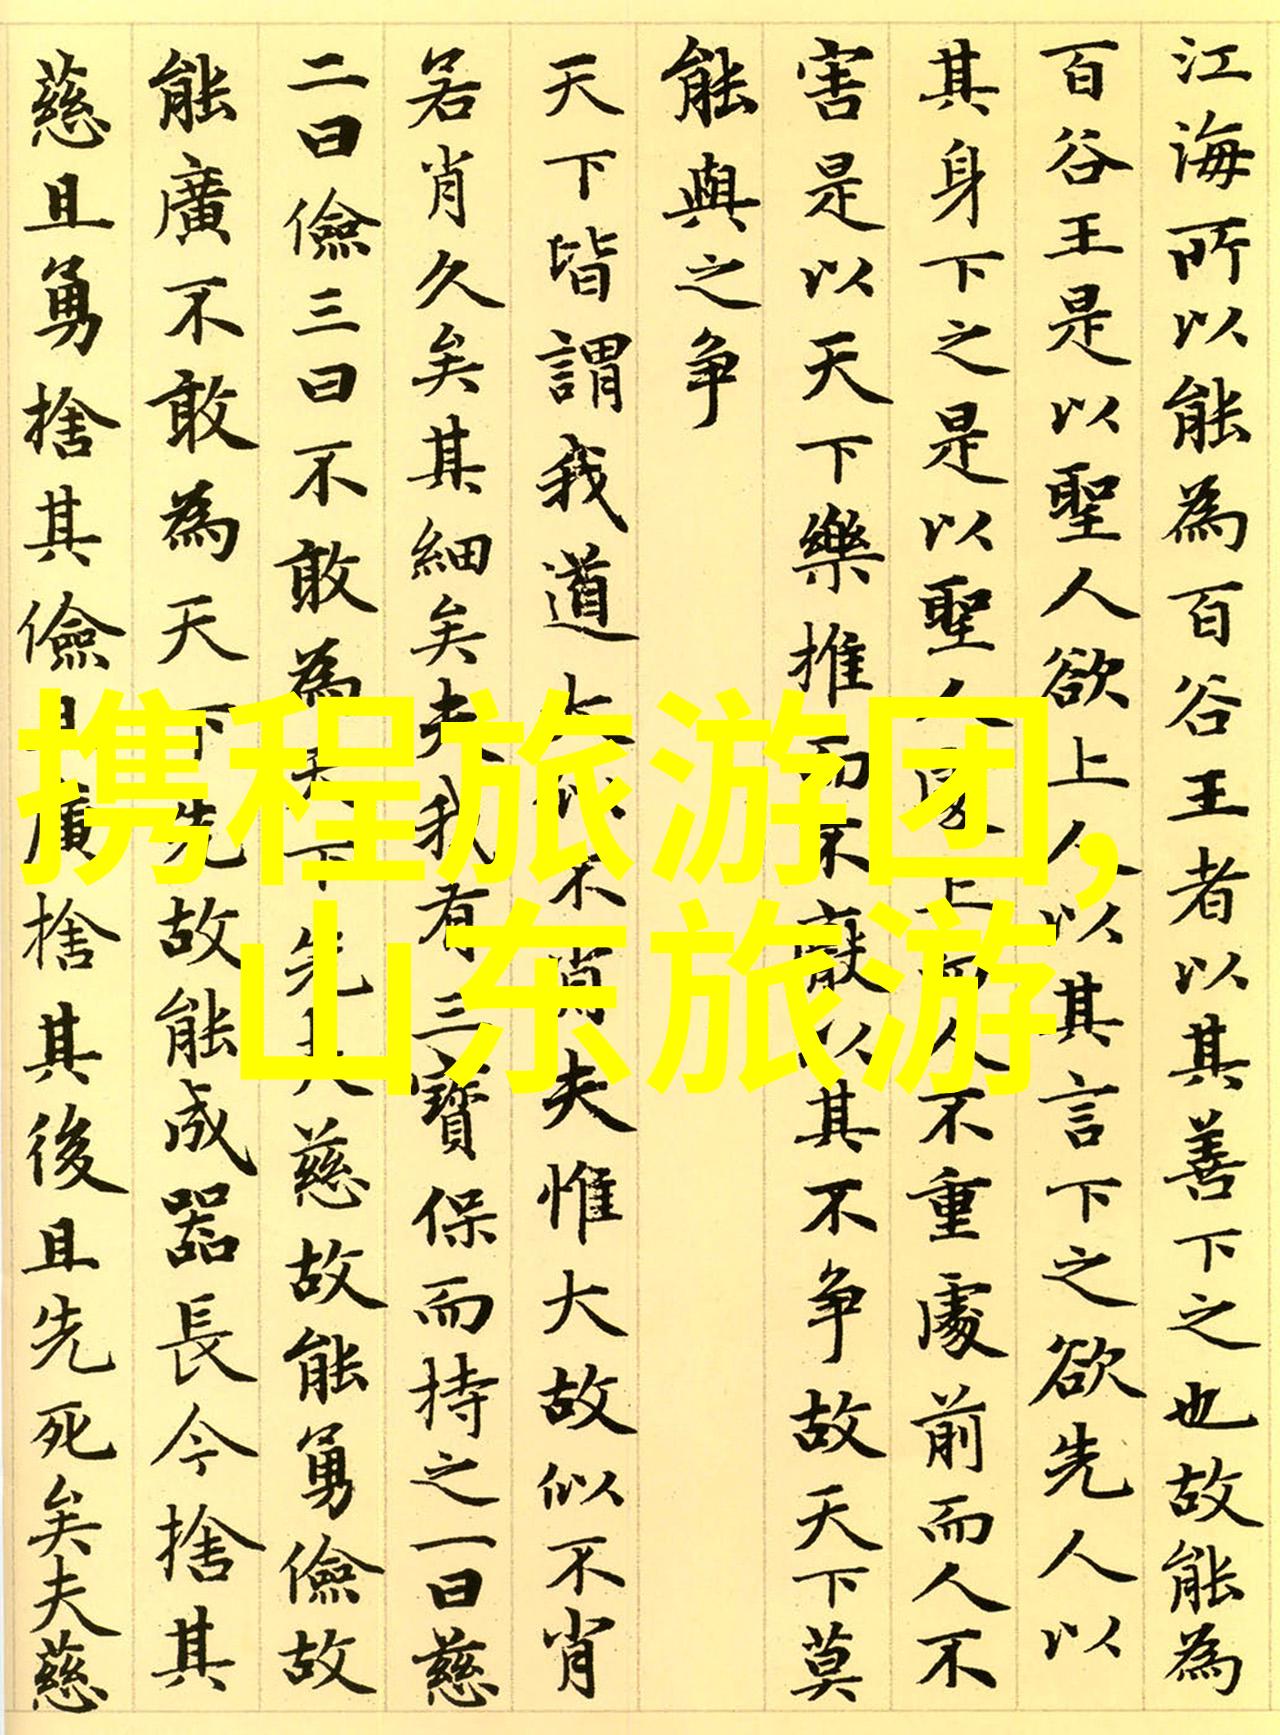 江海所以能為百谷王者以其善下之也故能為
百谷王是以聖人欲上人以其言下之欲先人以
其身下之是以聖人處上而人不重處前而人不
害是以天下樂推而不厭以其不争故天下莫
能與之争
天下皆謂我道大似不肖夫惟大故似不肖
若肖久矣其細矣夫我有三寶保而持之一曰慈
二曰儉三曰不敢為天下先夫慈故能勇儉故
能廣不敢為天下先故能成器長今捨其
慈且勇捨其儉且廣捨其後且先死矣夫慈
携程旅游团,
山东旅游